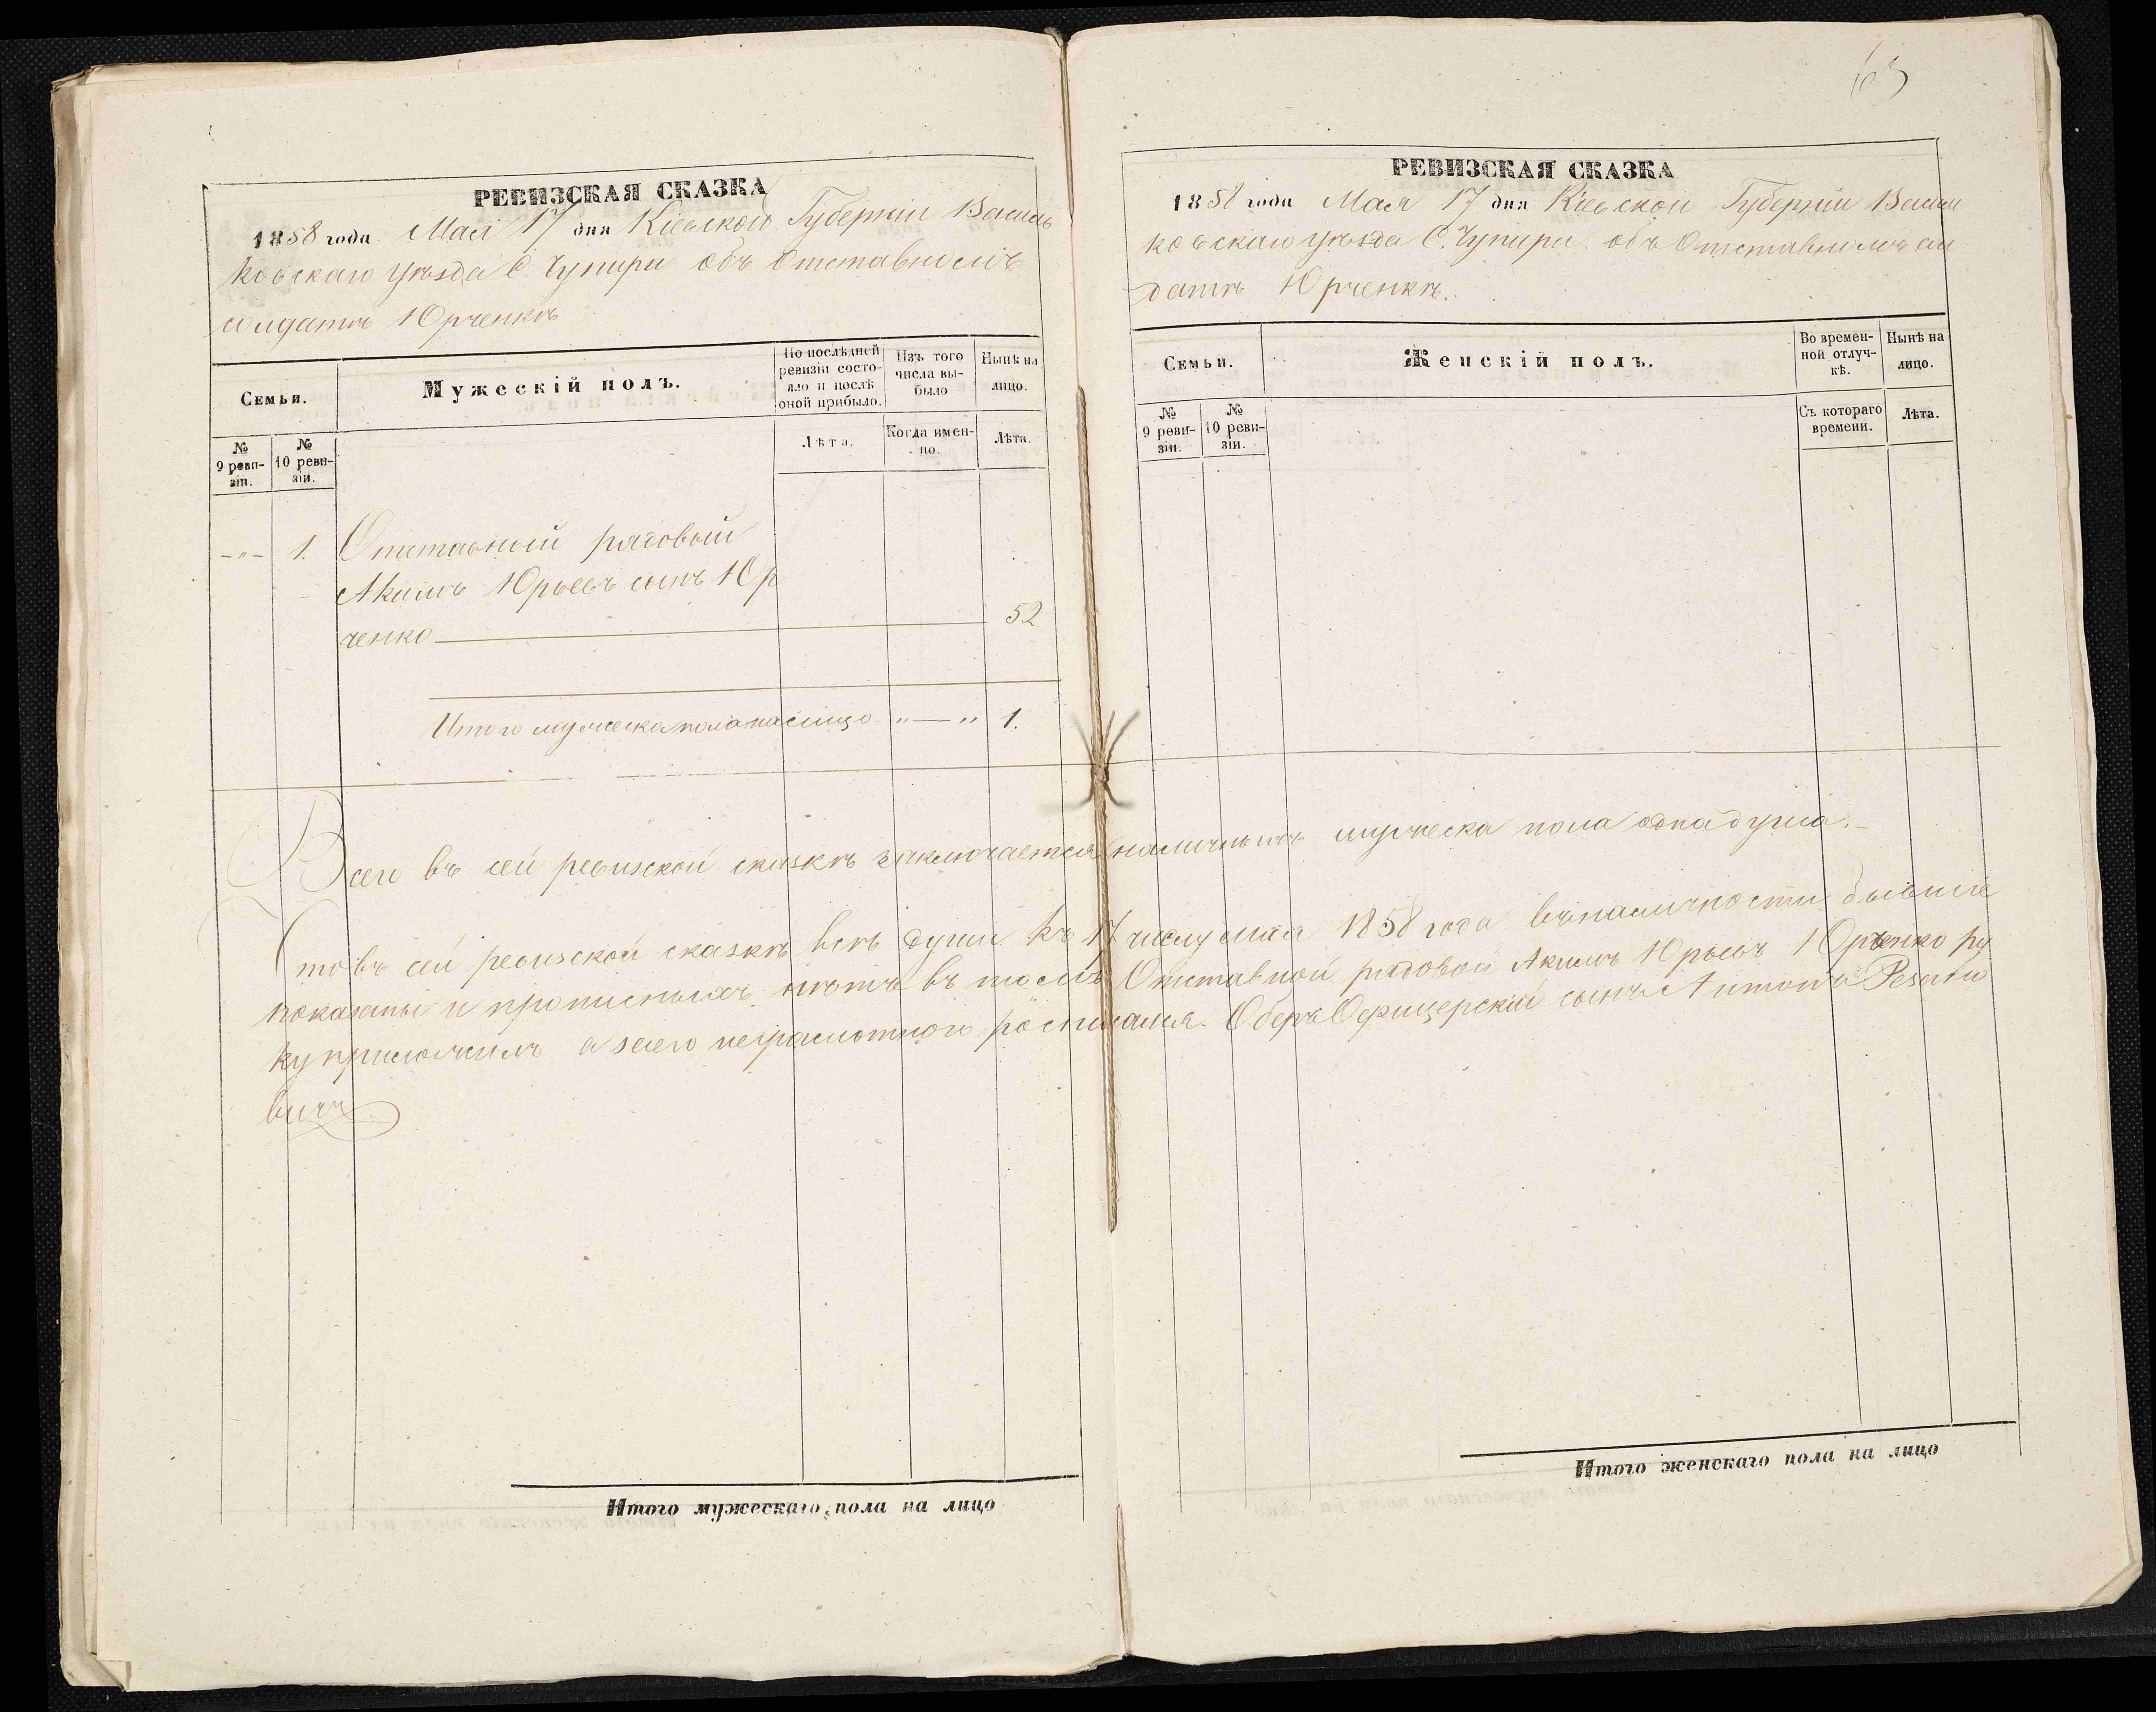 63
РЕВИЗСКАЯ СКАЗКА
1858 года Мая 17 дня Кіевской Губерніи Василь
ковскаго уѣзда С. Чупири объ Отставномъ
солдатѣ Юрченкѣ
Семьи.
Мужескій полъ.
По послѣдней ревизіи состо-
яло и послѣ оной прибыло.
Изъ того числа вы-
было
Нынѣ на лицо.
№ 9 реви-
зіи.
№ 10 реви-
зіи.
Лѣта.
Когда имен-
но.
Лѣта.
-„- 1. Отставный рядовый
Акимъ Юрьевъ сынъ Юр
ченко 52
Итого мужеска пола налицо „ — „ 1.
РЕВИЗСКАЯ СКАЗКА
1858 года Мая 17 дня Кіевской Губерніи Васил
ковскаго уѣзда С. Чупири объ Отставномъ сол
датѣ Юрченкѣ.
Семьи.
Женскій полъ.
Во времен-
ной отлуч-
кѣ.
Нынѣ на лицо.
№ 9 реви-
зіи.
№ 10 реви-
зіи.
Съ котораго времени.
Лѣта.
Всего въ сей ревизской сказкѣ заключается наличныхъ мужеска пола одна душа.
Что въ сей ревизской сказкѣ всѣ души къ 17 числу мая 1858 года въ наличности бывшіе
показаны и прописныхъ нѣтъ въ томъ Отставной рядовой Акимъ Юрьевъ Юрченко ру
ку приложилъ а за его неграмотного росписался. Оберъ Офицерскій сынъ Антонъ
вичъ
Итого мужескаго пола на лицо
Итого женскаго пола на лицо